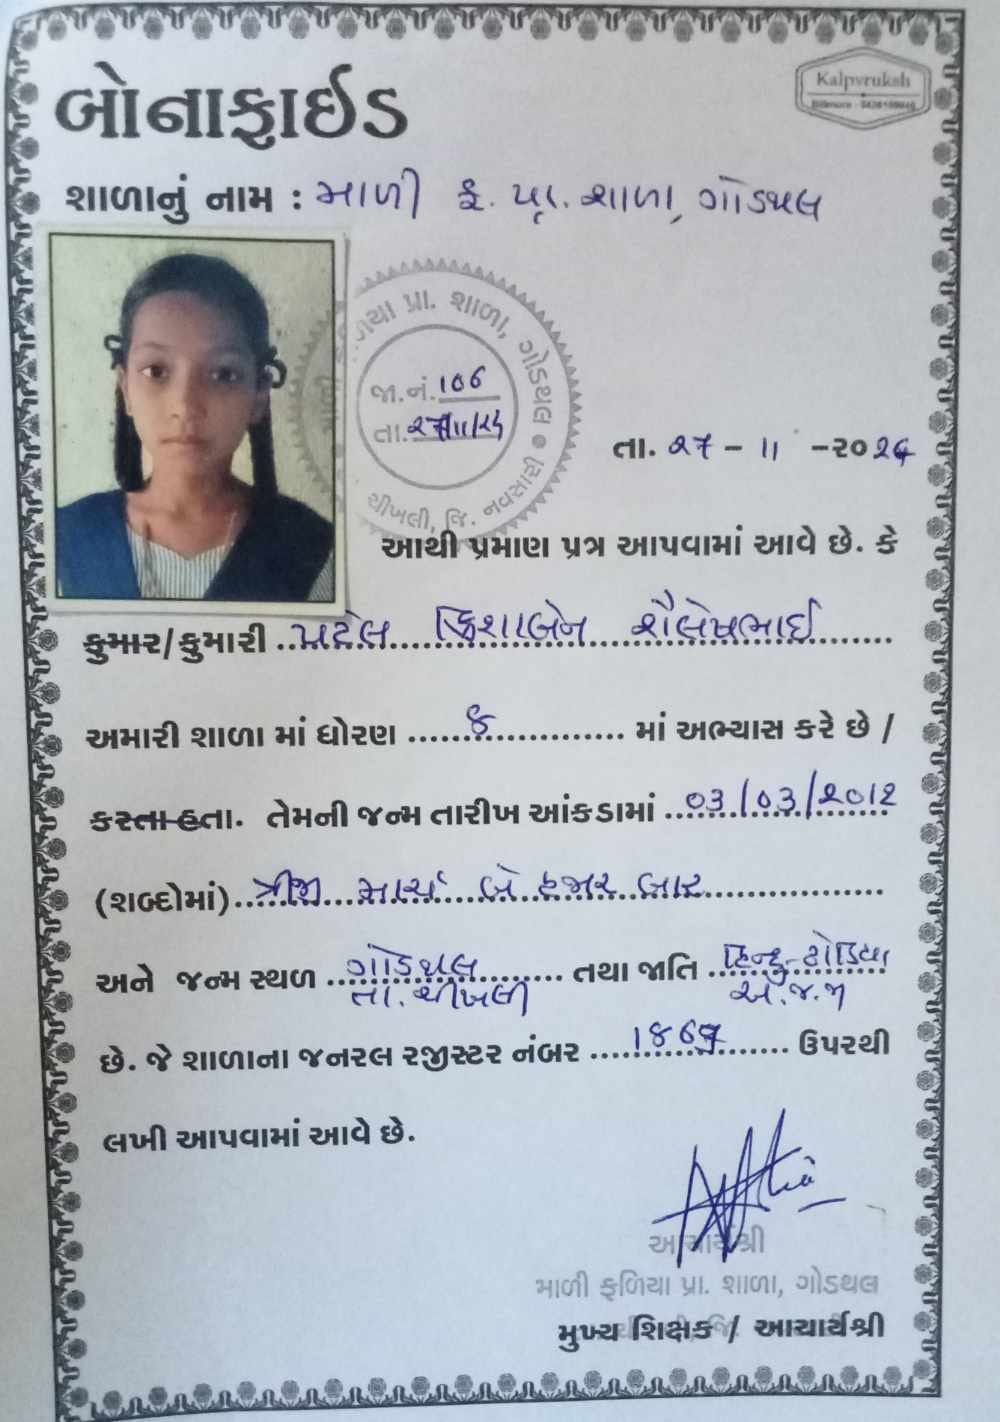 Kalpvruksh
બોનાફાઈડ
શાળાનું નામ : માળી ફ. પ્રા. શાળા, ગોડથલ
ળિયા પ્રા. શાળા, ગોડથલ
જા.નં. 106
તા. ૨૭/11/24
ચીખલી, જિ. નવસારી
તા. ૨૭ - 11 - ૨૦૨૪
આથી પ્રમાણ પત્ર આપવામાં આવે છે. કે
કુમાર/કુમારી ..પટેલ ક્રિશાબેન શૈલેષભાઈ
અમારી શાળા માં ધોરણ ......૮............ માં અભ્યાસ કરે છે /
કરતા હતા. તેમની જન્મ તારીખ આંકડામાં ..૦૩/૦૩/૨૦૧૨
(શબ્દોમાં)..ત્રીજી માર્ચ બે હજાર બાર
અને જન્મ સ્થળ ..ગોડથલ........ તથા જાતિ ..હિન્દુ-ઢોડિયા
તા. ચીખલી અ.જ.જા
છે. જે શાળાના જનરલ રજીસ્ટર નંબર ....1867...... ઉપરથી
લખી આપવામાં આવે છે.
આચાર્યશ્રી
માળી ફળિયા પ્રા. શાળા, ગોડથલ
મુખ્ય શિક્ષક / આચાર્યશ્રી